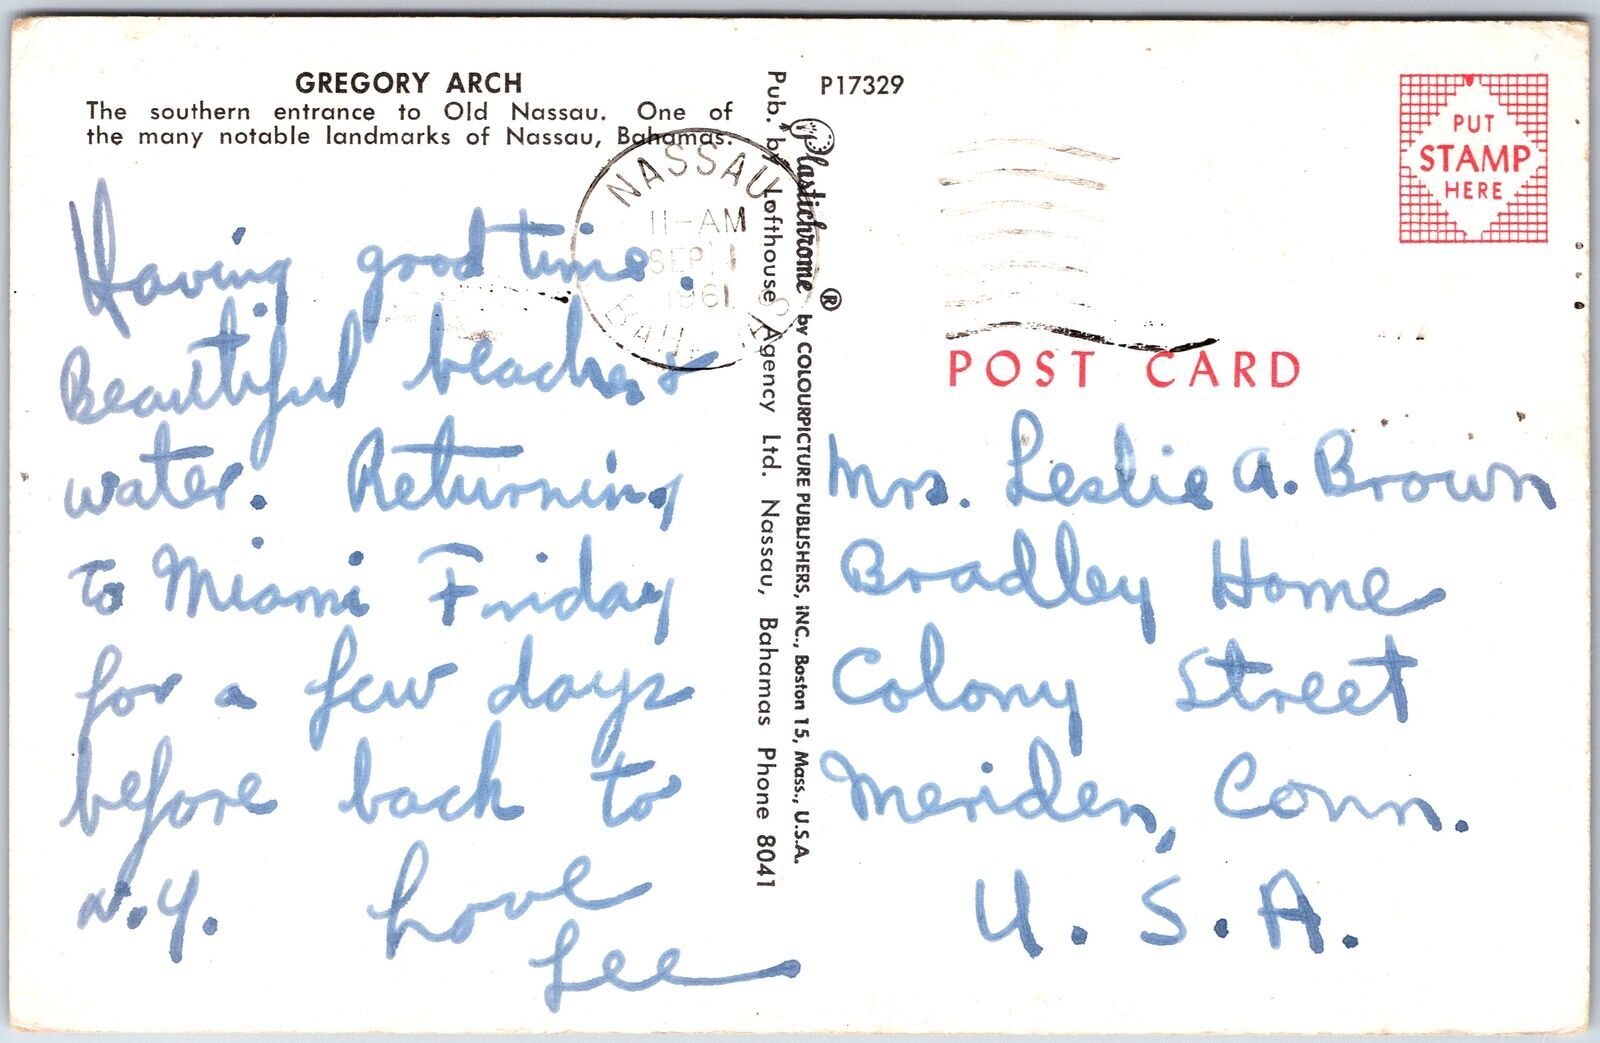 GREGORY ARCH
The southern entrance to Old Nassau. One of
the many notable landmarks of Nassau, Bahamas.
Having good time.
Beautiful beaches
water. Returning
to Miami Friday
for a few days
before back to
N.Y. Love
Lee
NASSAU
11-AM
SEP
1961
BAHAMAS
Pub. by Lofthouse Agency Ltd. Nassau, Bahamas Phone 8041
Plastichrome® by COLOURPICTURE PUBLISHERS, INC., Boston 15, Mass., U.S.A.
P17329
PUT
STAMP
HERE
POST CARD
Mrs. Leslie A. Brown
Bradley Home
Colony Street
Meriden, Conn.
U.S.A.